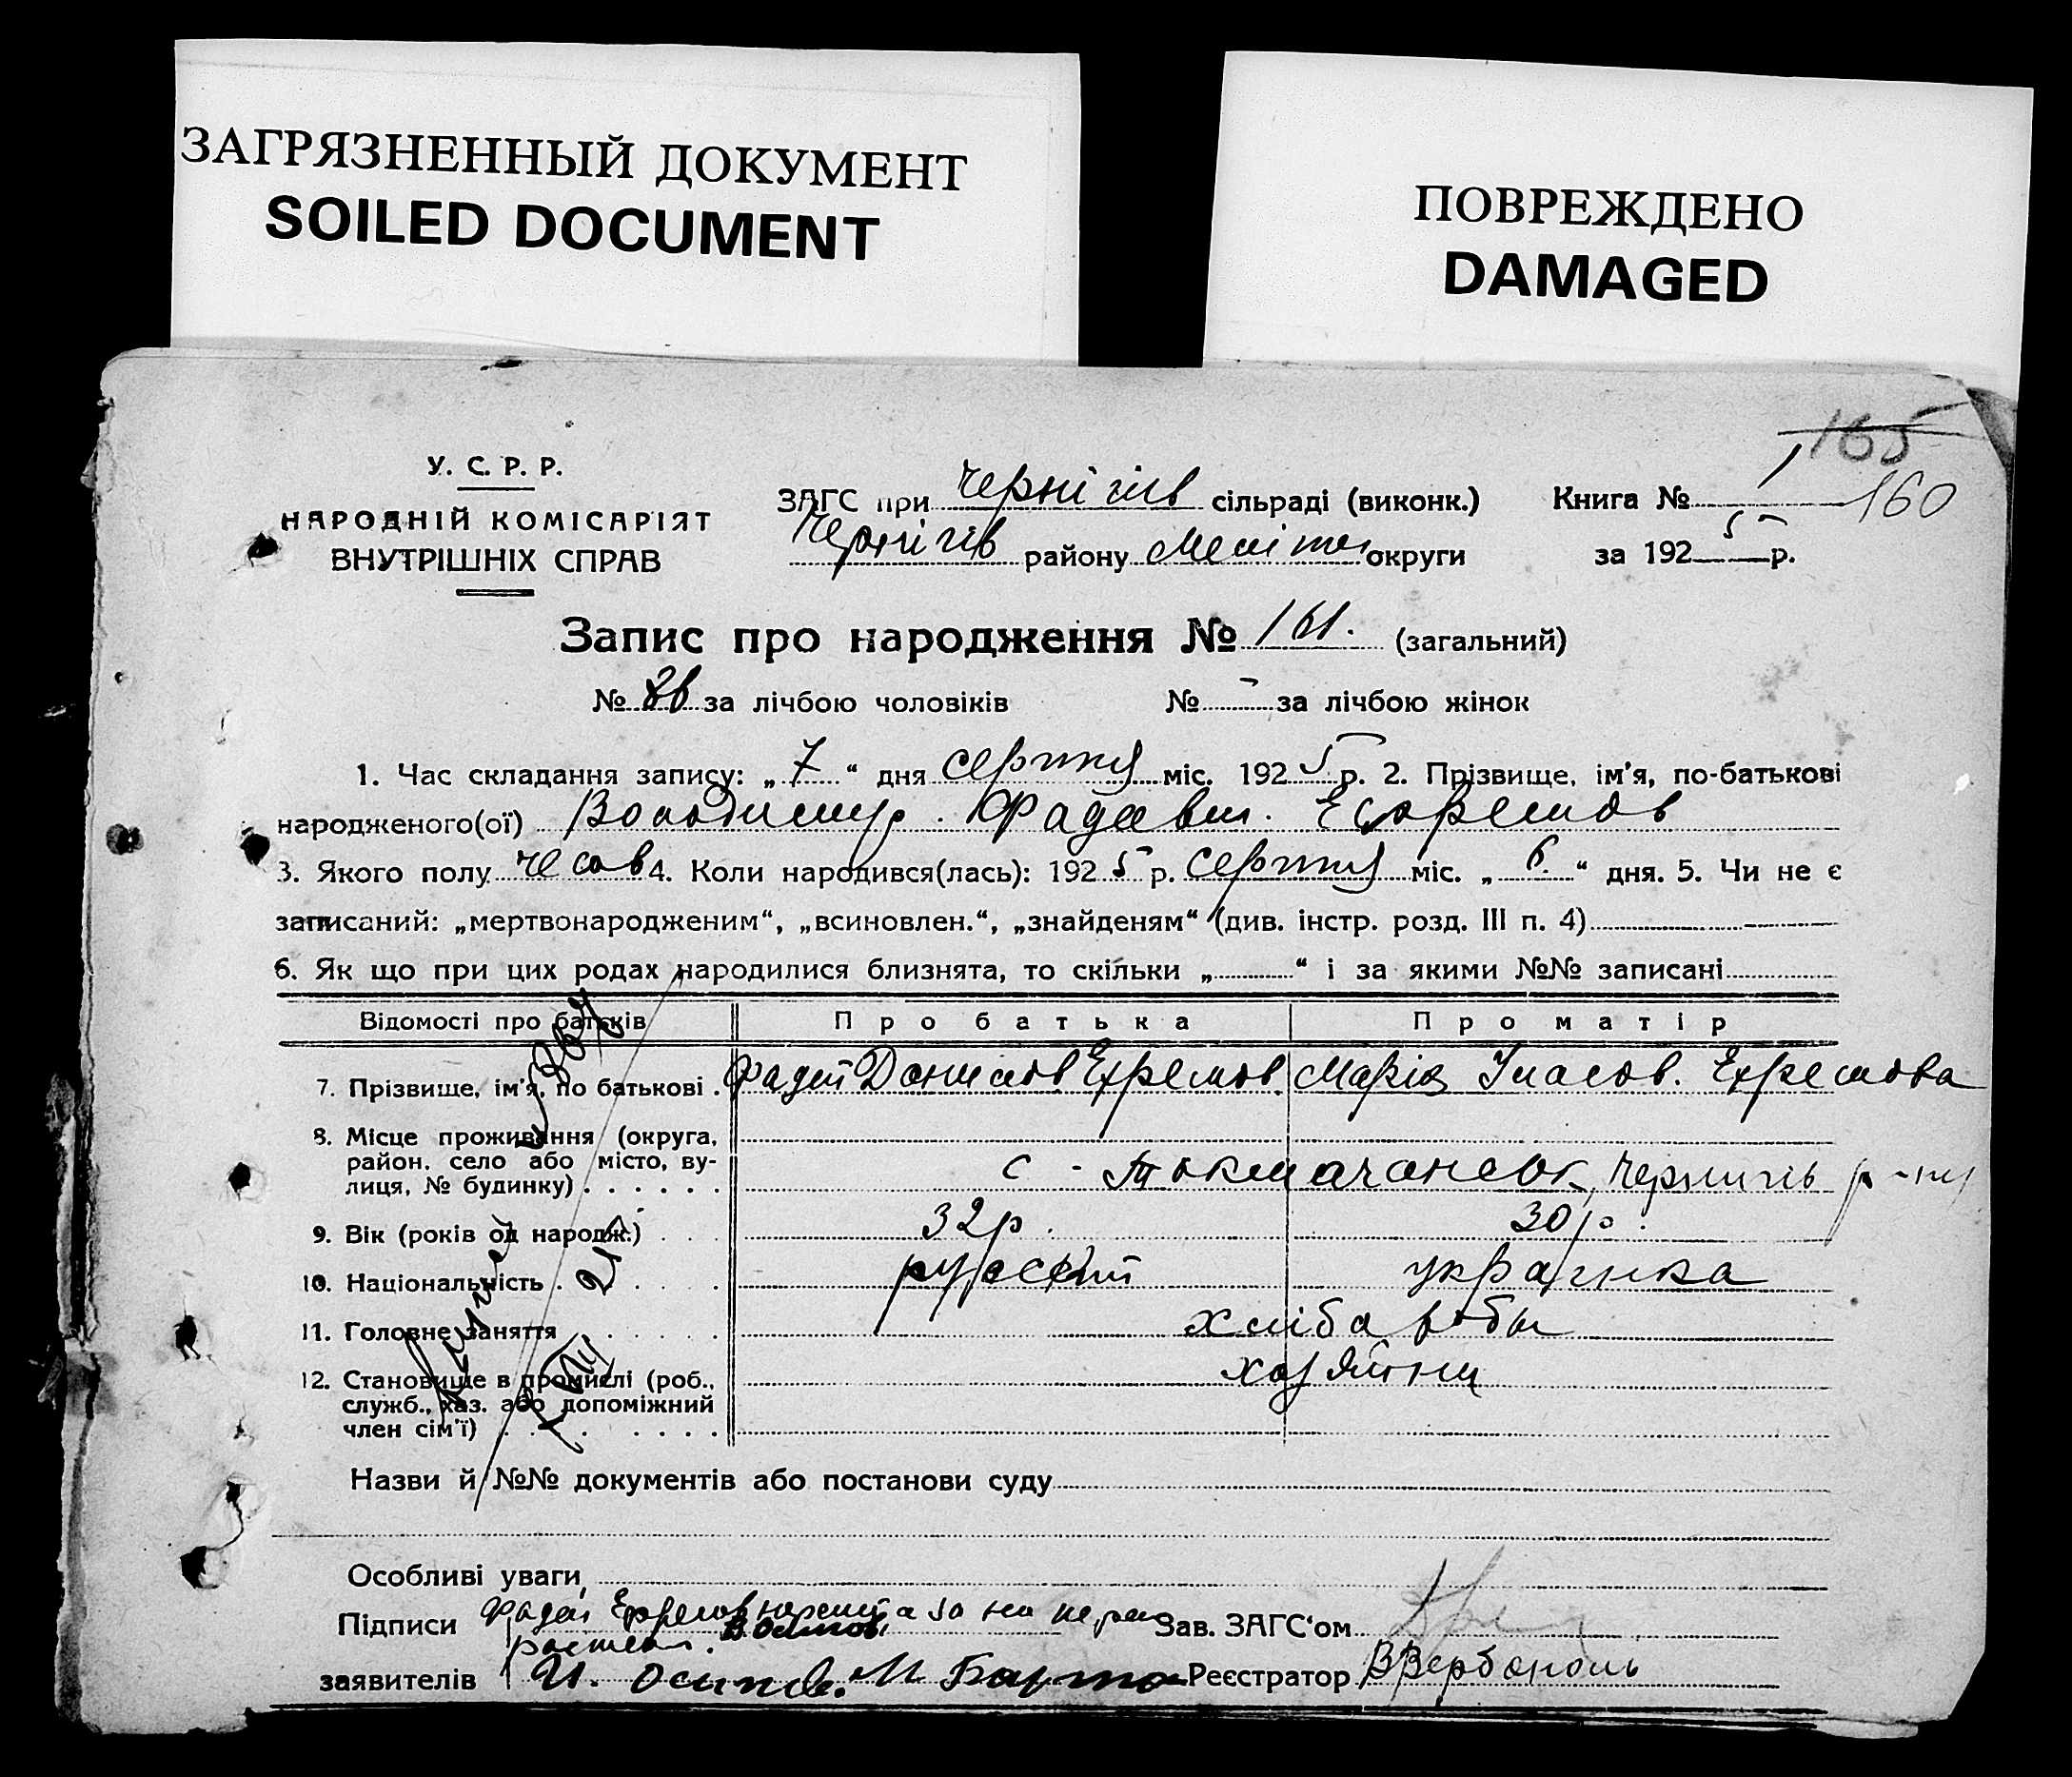 ЗАГРЯЗНЕННЫЙ ДОКУМЕНТ
SOILED DOCUMENT
ПОВРЕЖДЕНО
DAMAGED
165
160
У. С. Р. Р.
НАРОДНІЙ КОМІСАРІЯТ
ВНУТРІШНІХ СПРАВ
ЗАГС при Чернігів сільраді (виконк.)
Чернігів району Меліт округи
Книга № 1
за 1925 р.
Запис про народження № 161. (загальний)
№ за лічбою чоловіків № - за лічбою жінок
1. Час складання запису: „7“ дня серпня міс. 1925 р. 2. Прізвище, ім'я, по-батькові
народженого(ої) Володимир. Фадеевич. Ефремов
3. Якого полу чолов 4. Коли народився(лась): 1925 р. серпня міс. „6.“ дня. 5. Чи не є
записаний: „мертвонародженим“, „всиновлен.“, „знайденям“ (див. інстр. розд. III п. 4)
6. Як що при цих родах народилися близнята, то скільки „ “ і за якими №№ записані
Відомості про батьків Про батька Про матір
7. Прізвище, ім'я, по батькові . Фадей Данилов Ефремов. Марія Власов. Ефремова
8. Місце проживання (округа,
район, село або місто, ву-
лиця, № будинку) . . . . . . с - Токмачанськ, Чернигів р-ну
9. Вік (років од народж.) . . . 32 р. 30 р.
10. Національність . . . . русский українка
11. Головне заняття . . . . . хліба роби
12. Становище в промислі (роб.,
служб., хаз. або допоміжний
член сім'ї) . . . . . . . хазяйни
Назви й №№ документів або постанови суду
Особливі уваги
Підписи Фадей Ефремов а за не
В Осипов
заявителів И. Осипов. М
Зав. ЗАГС'ом
Реєстратор В Вербополь